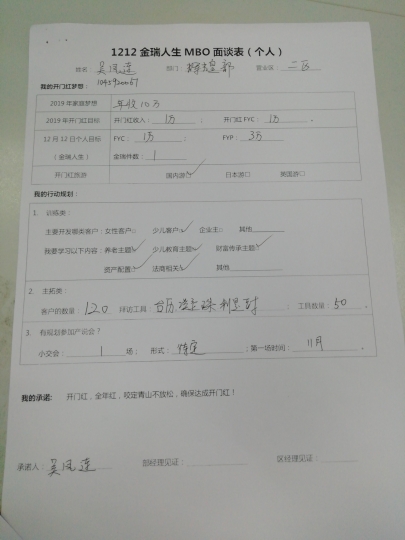 1212金瑞人生MBO面谈表（个人）
姓名：吴凤莲 部门： 部 营业区：二区
我的开门红梦想：
2019年豪度梦想 年收10万
2019年开门红目标 开门红收入：1万； 开门红FYC：1万.
12月12日个人目标 FYC：1万； FYP：3万
（金瑞人生） 金瑞件数：1
开门红旅游 国内游✓ 日本游□ 美国游□
我的行动规划：
1. 训练类：
主要开发哪类客户：女性客户□ 少儿客户✓ 企业主□ 其他
我要学习以下内容：养老主题✓ 少儿教育主题✓ 财富传承主题✓
资产配置✓ 法商相关✓ 其他
2. 主拓类：
客户的数量：120 拜访工具：台历 利是封 ；工具数量：50.
3. 有规划参加产说会？
小交会：1 场； 形式： ；第一场时间：11月.
我的承诺: 开门红，全年红，咬定青山不放松，确保达成开门红！
承诺人：吴凤莲 部经理见证： 区经理见证：